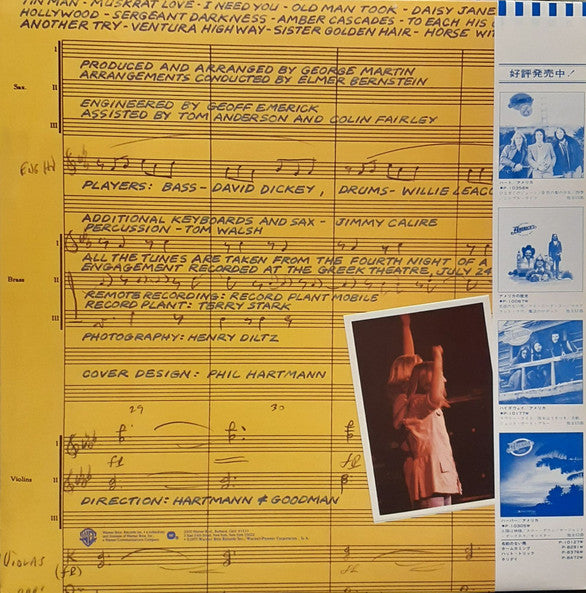 TIN MAN - MUSKRAT LOVE - I NEED YOU - OLD MAN TOOK - DAISY JANE
HOLLYWOOD - SERGEANT DARKNESS - AMBER CASCADES - TO EACH HIS
ANOTHER TRY - VENTURA HIGHWAY - SISTER GOLDEN HAIR - HORSE WIT
PRODUCED AND ARRANGED BY GEORGE MARTIN
Sax.
I
II
III
ARRANGEMENTS CONDUCTED BY ELMER BERNSTEIN
ENGINEERED BY GEOFF EMERICK
ASSISTED BY TOM ANDERSON AND COLIN FAIRLEY
ENG HN
PLAYERS: BASS - DAVID DICKEY, DRUMS - WILLIE LEACO
ADDITIONAL KEYBOARDS AND SAX - JIMMY CALIRE
PERCUSSION - TOM WALSH
I
ALL THE TUNES ARE TAKEN FROM THE FOURTH NIGHT OF A
ENGAGEMENT RECORDED AT THE GREEK THEATRE, JULY 24
Brass
II
REMOTE RECORDING: RECORD PLANT MOBILE
RECORD PLANT: TERRY STARK
III
PHOTOGRAPHY: HENRY DILTZ
COVER DESIGN: PHIL HARTMANN
29
30
I
Violins
II
DIRECTION: HARTMANN & GOODMAN
III
VIOLAS
好評発売中!
ハート/アメリカ
P-10356W
アメリカの歴史
ハイダウェイ/アメリカ
P-10177W
ハーバー/アメリカ
ホームカミング
ハット・トリック
ホリデイ